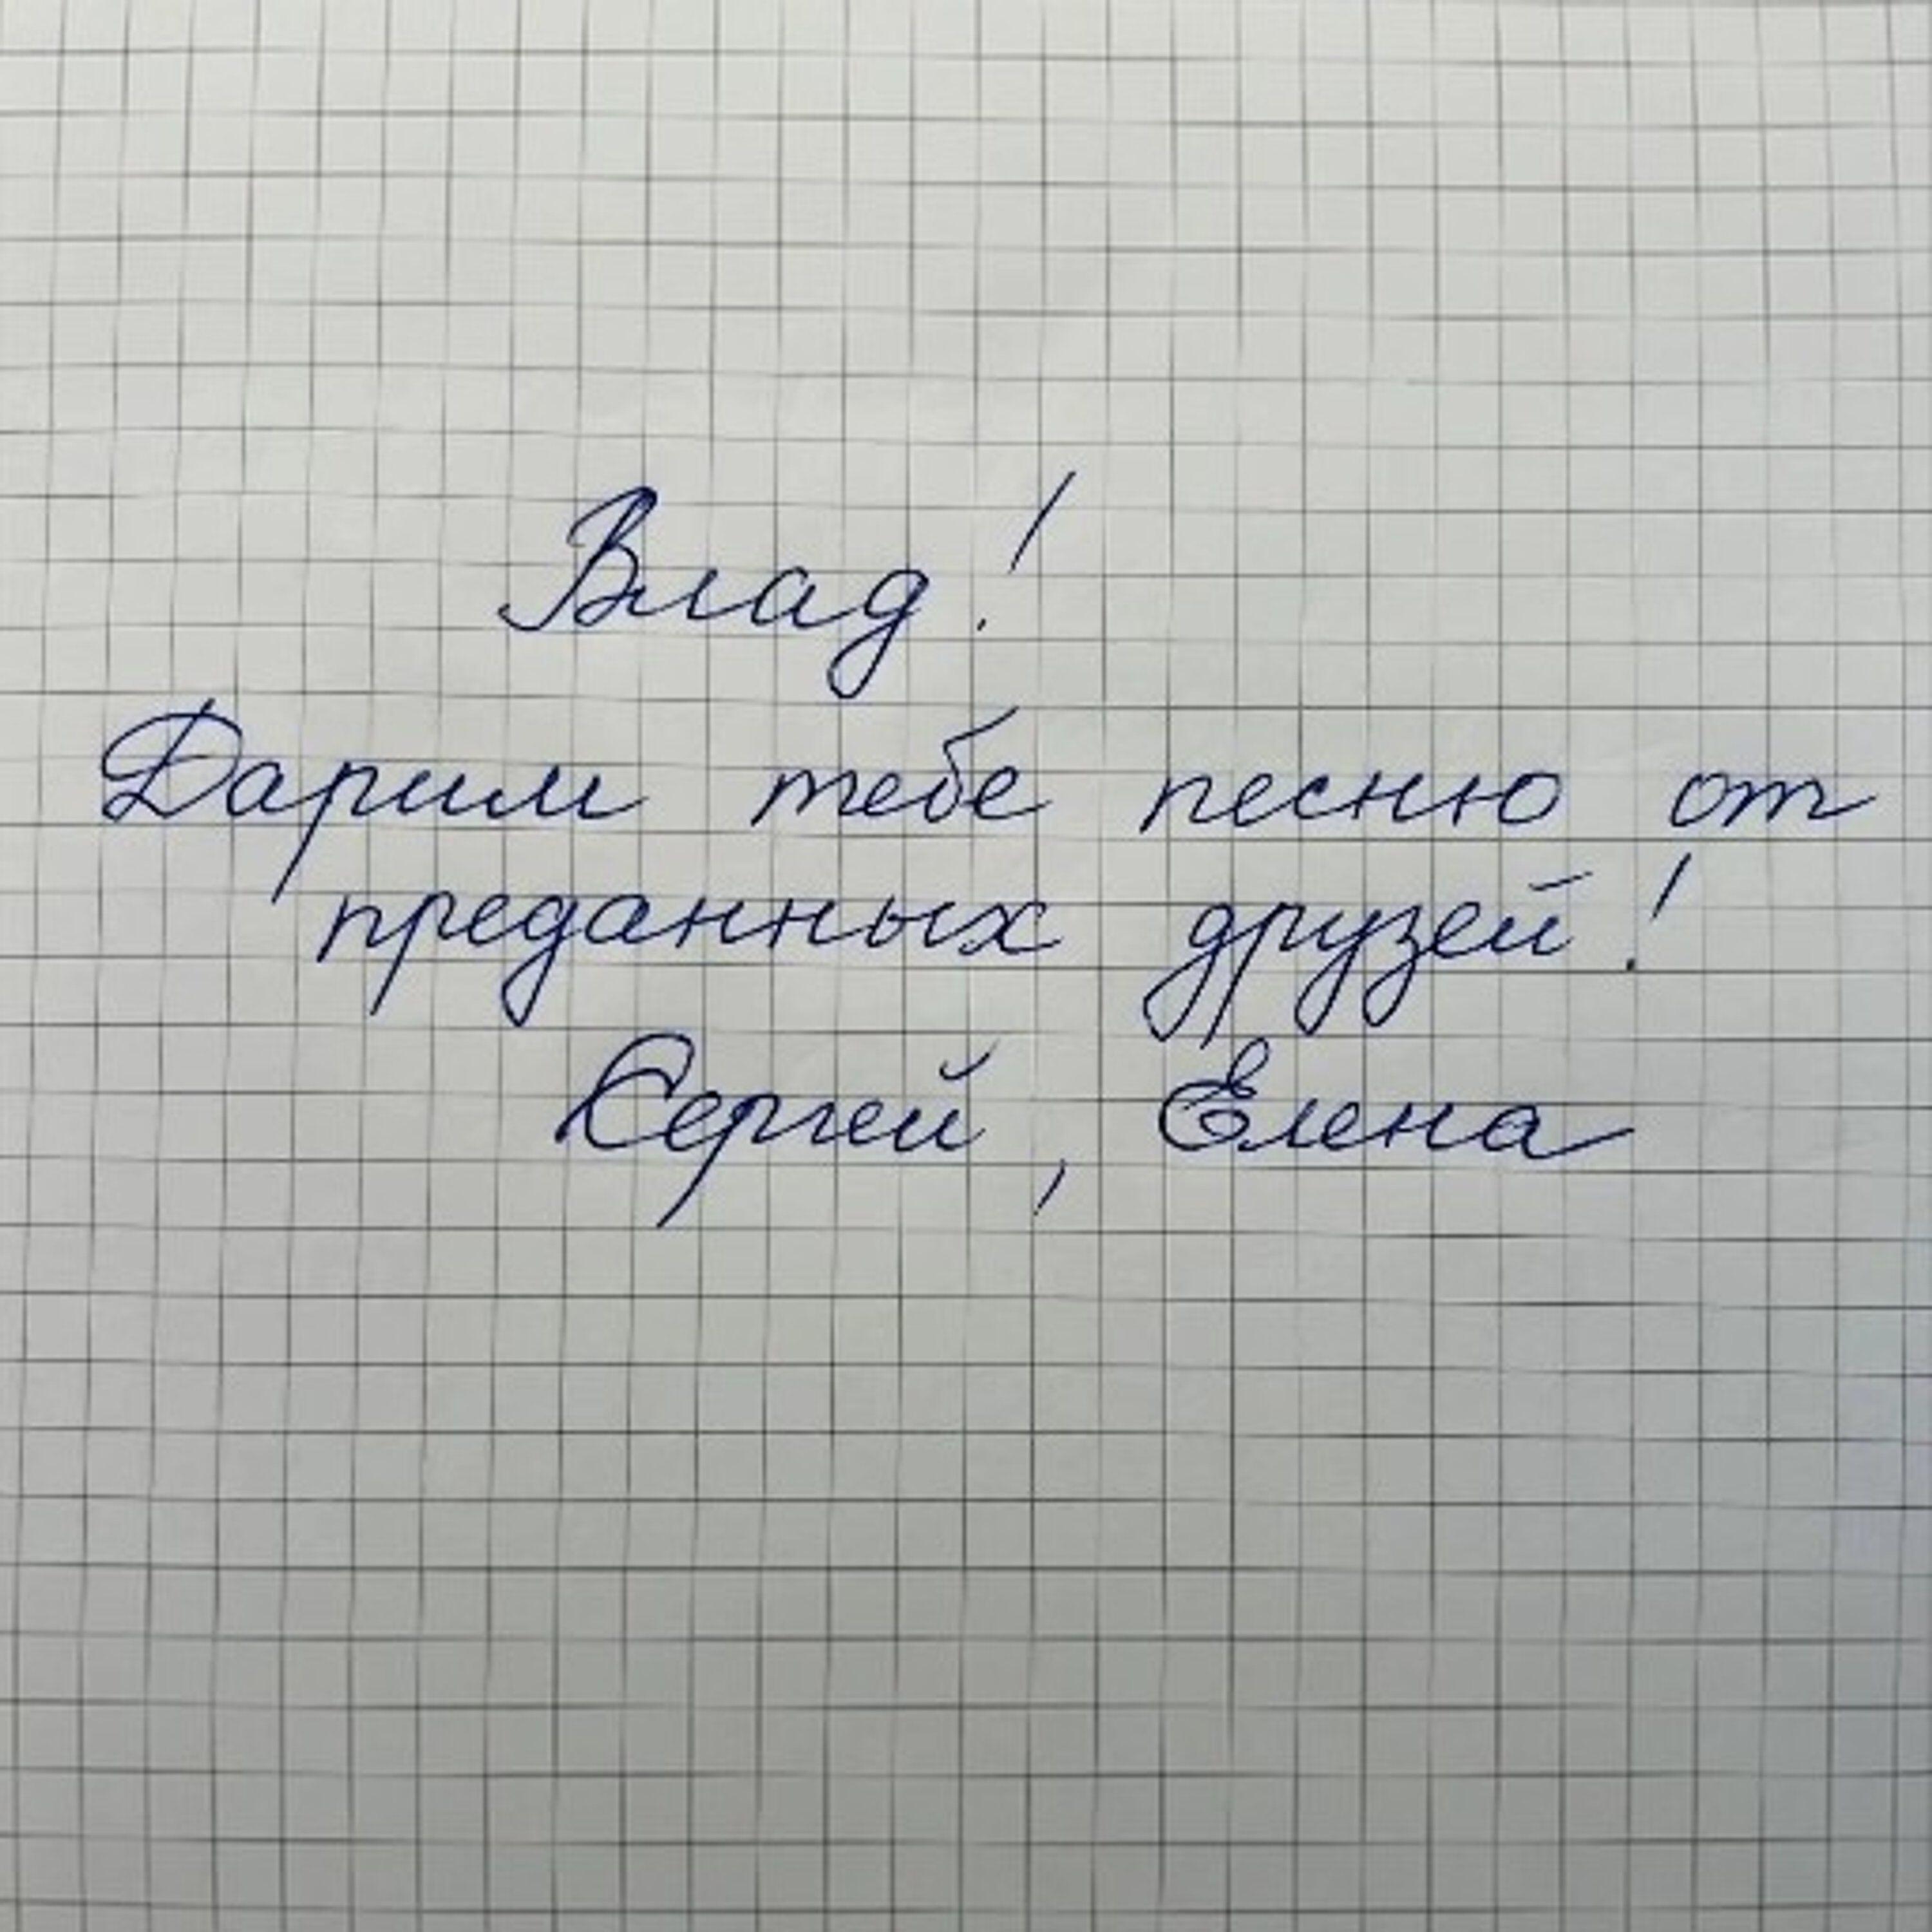 Влад!
Дарим тебе песню от
преданных друзей!
Сергей, Елена